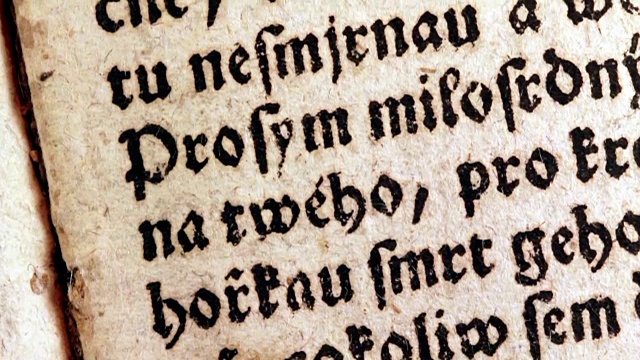 tu neſmjrnau a
Proſym miloſrdný
na twého, pro kre
hořkau ſmrt geho
kokoliw ſem